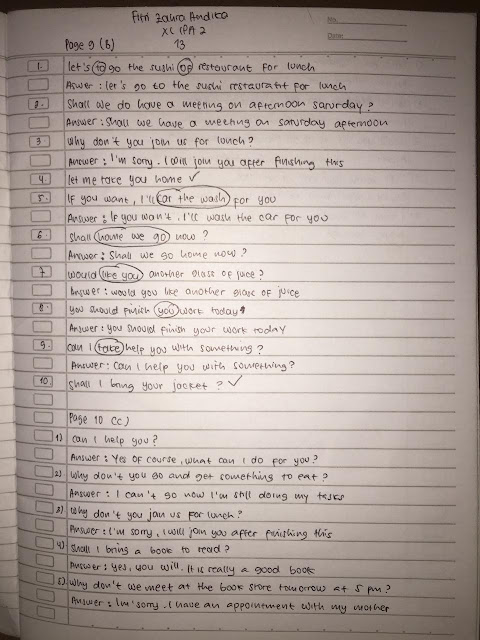 Fitri Zahra Andika
XI IPA 2
13
No.
Date:
Page 9 (b)
1. let's to go the sushi of restaurant for lunch
Aswer : let's go to the sushi restaurant for lunch
2. Shall we do have a meeting on afternoon saturday ?
Answer : Shall we have a meeting on saturday afternoon
3. Why don't you join us for lunch ?
Answer : I'm sorry . I will join you after finishing this
4. let me take you home ✓
5. If you want , I'll car the wash for you
Answer : If you wan't . I'll wash the car for you
6. Shall home we go now ?
Answer : Shall we go home now ?
7. Would like you another glass of juice ?
Answer : would you like another glass of juice
8. you should finish you work today
Answer : you should finish your work today
9. Can I take help you with something ?
Answer : Can I help you with something ?
10. Shall I bring your jacket ? ✓
Page 10 (c)
1) Can I help you ?
Answer : Yes of course , what can I do for you ?
2) Why don't you go and get something to eat ?
Answer : I can't go now I'm still doing my tasks
3) Why don't you join us for lunch ?
Answer : I'm sorry , I will join you after finishing this
4) Shall I bring a book to read ?
Answer : yes, you will . It is really a good book
5) Why don't we meet at the book store tomorrow at 5 pm ?
Answer : Im'sorry . I have an appointment with my mother